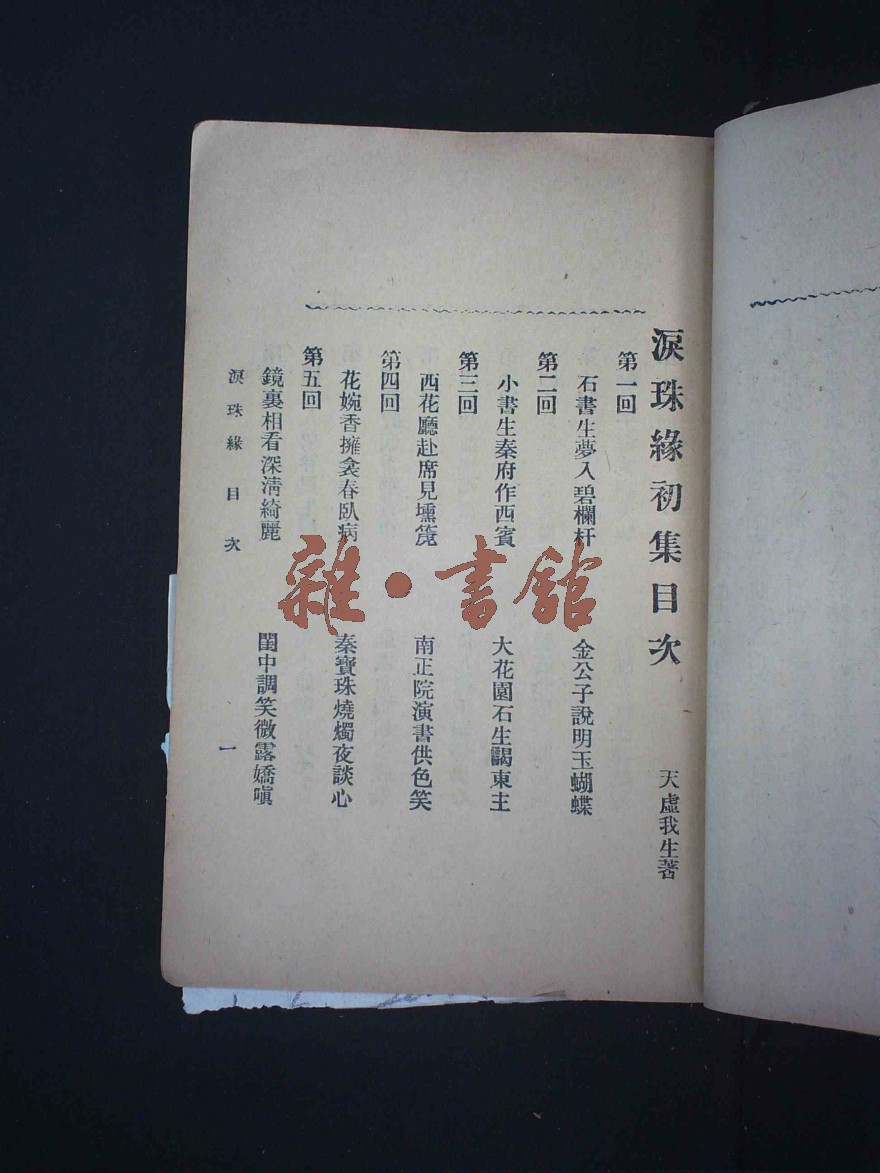 淚珠緣初集目次
天虛我生著
第一回
石書生夢入碧欄杆 金公子說明玉蝴蝶
第二回
小書生秦府作西賓 大花園石生謁東主
第三回
西花廳赴席見壎箎 南正院演書供色笑
第四回
花婉香擁衾春臥病 秦寶珠燒燭夜談心
第五回
鏡裏相看深淸綺麗 閨中調笑微露嬌嗔
淚珠緣 目次
一
雜·書館